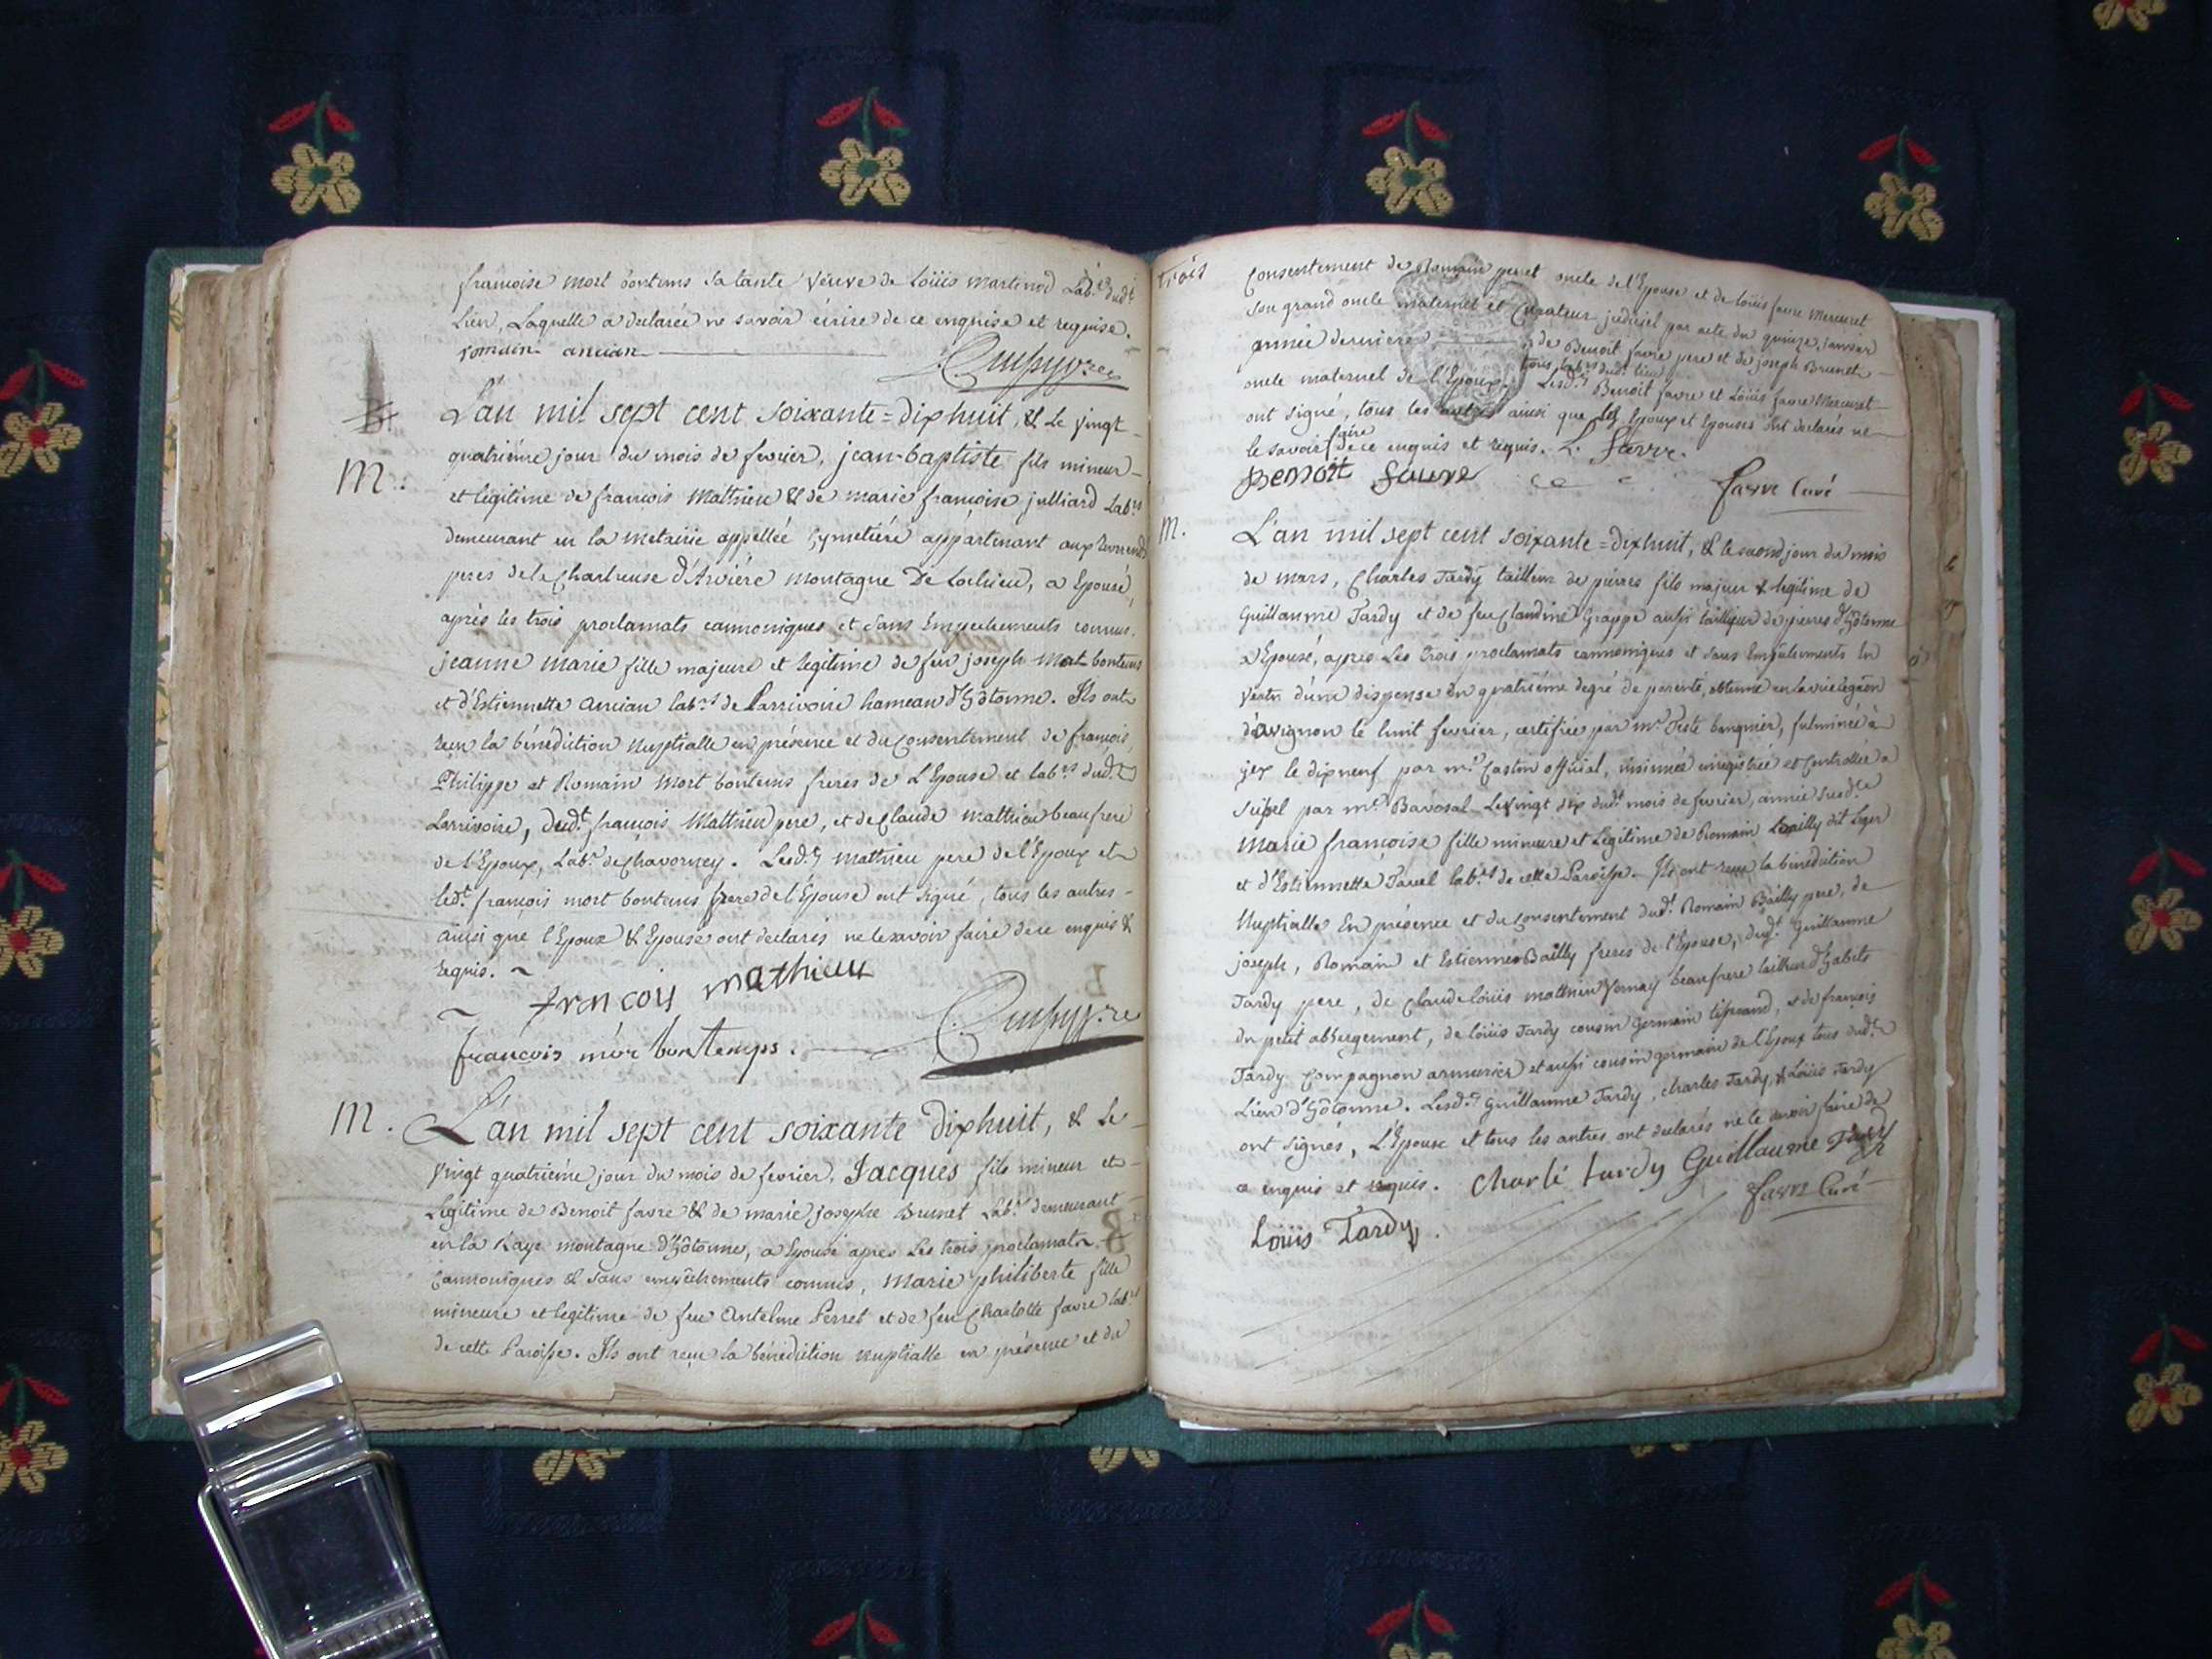 françoise mort bontems sa tante veuve de Loüis martinod Lab.r dud.t
Lieu, Laquelle a declarée ne savoir écrire de ce enquise et requise.
romain ancian
L'an mil sept cent soixante=dixhuit, & Le vingt
quatriéme jour du mois de fevrier, jean-baptiste fils mineur
M.
et legitime de françois Mathieu & de marie françoise julliard Lab.rs
demeurant en la metairie appellée Cymetiére appartenant aux Reverends
peres de la Chartreuse d'Arviére montagne De Lochieu, a Epousé,
après les trois proclamats cannoniques et sans Empechements connus,
jeanne marie fille majeure et legitime de feu joseph Mort bontems
et d'Estiennette ancian lab.rs de Larrivoire hameau d'hôtonne. Ils ont
reçu la bénédiction Nuptialle en présence et du consentement de françois,
Philippe et Romain Mort bontems freres de L'Epouse et lab.rs dud.t
Larrivoire, dud.t françois Mathieu pere, et de Claude mathieu beaufrere
de l'Epoux, Lab.r de chavornay. Lesd.ts Mathieu pere de l'Epoux et
led.t françois mort bontems frere de l'Epouse ont signé, tous les autres
ainsi que l'Epoux & Epouse ont declarés ne le savoir faire de ce enquis &
requis.
francois mathieu
francois mór bon temps.
M. L'an mil sept cent soixante dixhuit, & Le
vingt quatriéme jour du mois de fevrier, Jacques fils mineur et
Legitime de Benoit favre & de marie josephe Brunet Lab.rs demeurant
en la Raye montagne d'hôtonne, a Epousé apres Les trois proclamats
Cannoniques & sans empêchements connus, Marie philiberte fille
mineure et legitime de feu Antelme Perret et de feu Charlotte favre lab.rs
de cette Paroisse. Ils ont reçu la bénédiction nuptialle en présence et du
trois
Consentement de Romain perret oncle de l'Epouse et de loüis favre Mercuret
son grand oncle maternel et Curateur judiciel par acte du quinze janvier
année derniere, de Benoit favre pere et de joseph Brunet
tous lab.rs dud.t lieu
oncle maternel de l'Epoux. Lesd.ts Benoit favre et Loüis favre Mercuret
ont signé, tous les autres ainsi que les Epoux et Epouse ont declarés ne
faire
le savoir de ce enquis et requis. L. favre.
Benoit favre favre Curé
M. L'an mil sept cent soixante=dixhuit, & le second jour du mois
de mars, Charles Tardy tailleur de pierres fils majeur & legitime de
Guillaume Tardy et de feu Claudine Grappe aussi tailleur de pierres d'hôtonne
a Epousé, après Les trois proclamats cannoniques et sans Empêchements En
vertu d'une dispense du quatriéme degré de parenté, obtenue en la vice legation
d'avignon le huit fevrier, certifiée par m.r Teste banquier, fulminée à
gex le dixneuf par m.r Castin official, insinuée enregistrée et Controllée a
par m.r Le vingt six dud.t mois de fevrier, année susd.te
Marie françoise fille mineure et Legitime de Romain Bailly dit Leger
et d'Estiennette lab.rs de cette Paroisse. Ils ont reçu la bénédiction
Nuptialle En présence et du consentement dud.t Romain Bailly pere, de
joseph, Romain et Estienne Bailly freres de l'Epouse, dud.t Guillaume
Tardy pere, de Claude loüis matthieu Vernay beaufrere tailleur d'habits
du petit abbergement, de loüis Tardy cousin germain tisserand, et de françois
Tardy Compagnon armurier et aussi cousin germain de l'Epoux tous dud.t
Lieu d'hôtonne. Lesd.ts Guillaume Tardy, charles Tardy, & Loüis Tardy
ont signés, L'Epouse et tous les autres ont declarés ne le savoir faire de
ce enquis et requis. Charle tardy Guillaume Tardy
Loüis Tardy. favre Curé